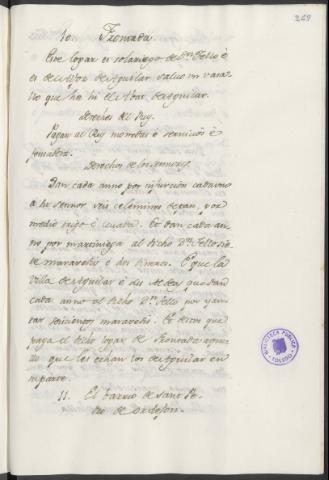 268
10. Froncada
Este logar es solariego de Dn. Tello è
es de alfoz de Aguilar salvo un vasa-
llo que ha hi el Abat de Aguilar.
Derechos del Rey.
Pagan al Rey monedas è servicios è
fonsadera.
Derechos de los Señores.
Dan cada anno por infurcion cada uno
a su sennor seis celemines de pan, por
medio trigo è cevada. Et dan cada an-
no por martiniega al dicho Dn. Tello sie-
te maravedis è dos dineros. È que la
Villa de Aguilar è sus aldeas que dan
cada anno al dicho Dn. Tello por yan-
tar seiscientos maravedis. Et dicen que
paga el dicho logar de Froncada aque-
llo que les echan los de Aguilar en
su parte.
11. El barrio de Sant Pe-
dro de Ordejon.
BIBLIOTECA PUBLICA
TOLEDO